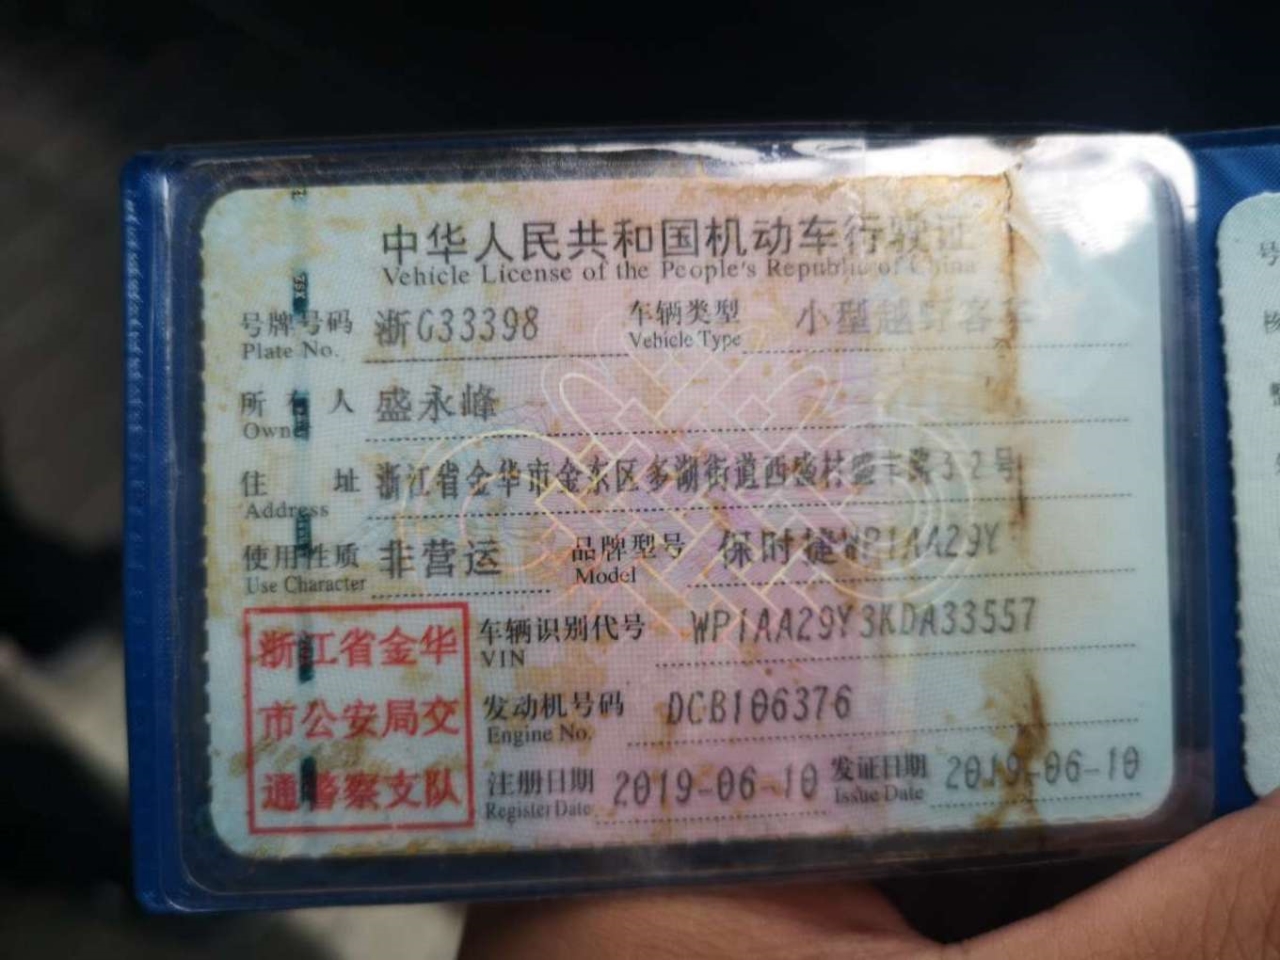 中华人民共和国机动车行驶证
Vehicle License of the People's Republic of China
号牌号码 浙G33398 车辆类型 小型越野客车
Plate No. Vehicle Type
所有人 盛永峰
Owner
住址 浙江省金华市金东区多湖街道西盛村盛丰路32号
Address
使用性质 非营运 品牌型号 保时捷WP1AA29Y
Use Character Model
浙江省金华
市公安局交
通警察支队
车辆识别代号 WP1AA29Y3KDA33557
VIN
发动机号码 DCB106376
Engine No.
注册日期 2019-06-10 发证日期 2019-06-10
Register Date Issue Date
号